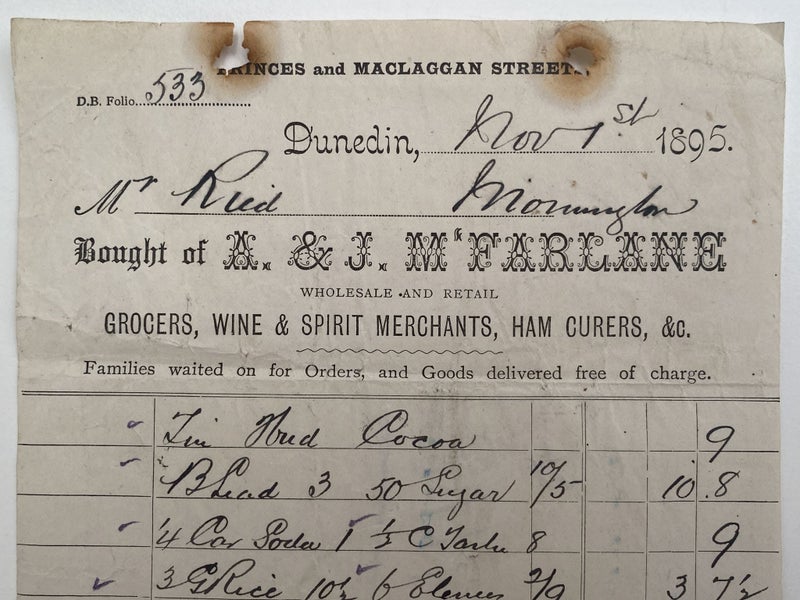 PRINCES and MACLAGGAN STREETS,
D.B. Folio 533
Dunedin, Nov 1st 1895.
Mr Reid Mornington
Bought of A. & J. McFARLANE
WHOLESALE AND RETAIL
GROCERS, WINE & SPIRIT MERCHANTS, HAM CURERS, &c.
Families waited on for Orders, and Goods delivered free of charge.
Tin Cocoa 9
3 50 Sugar 10/5 10 8
1/4 Car Soda 1 ½ C 8 9
3 G Rice 10½ 6 2/9 3 7½